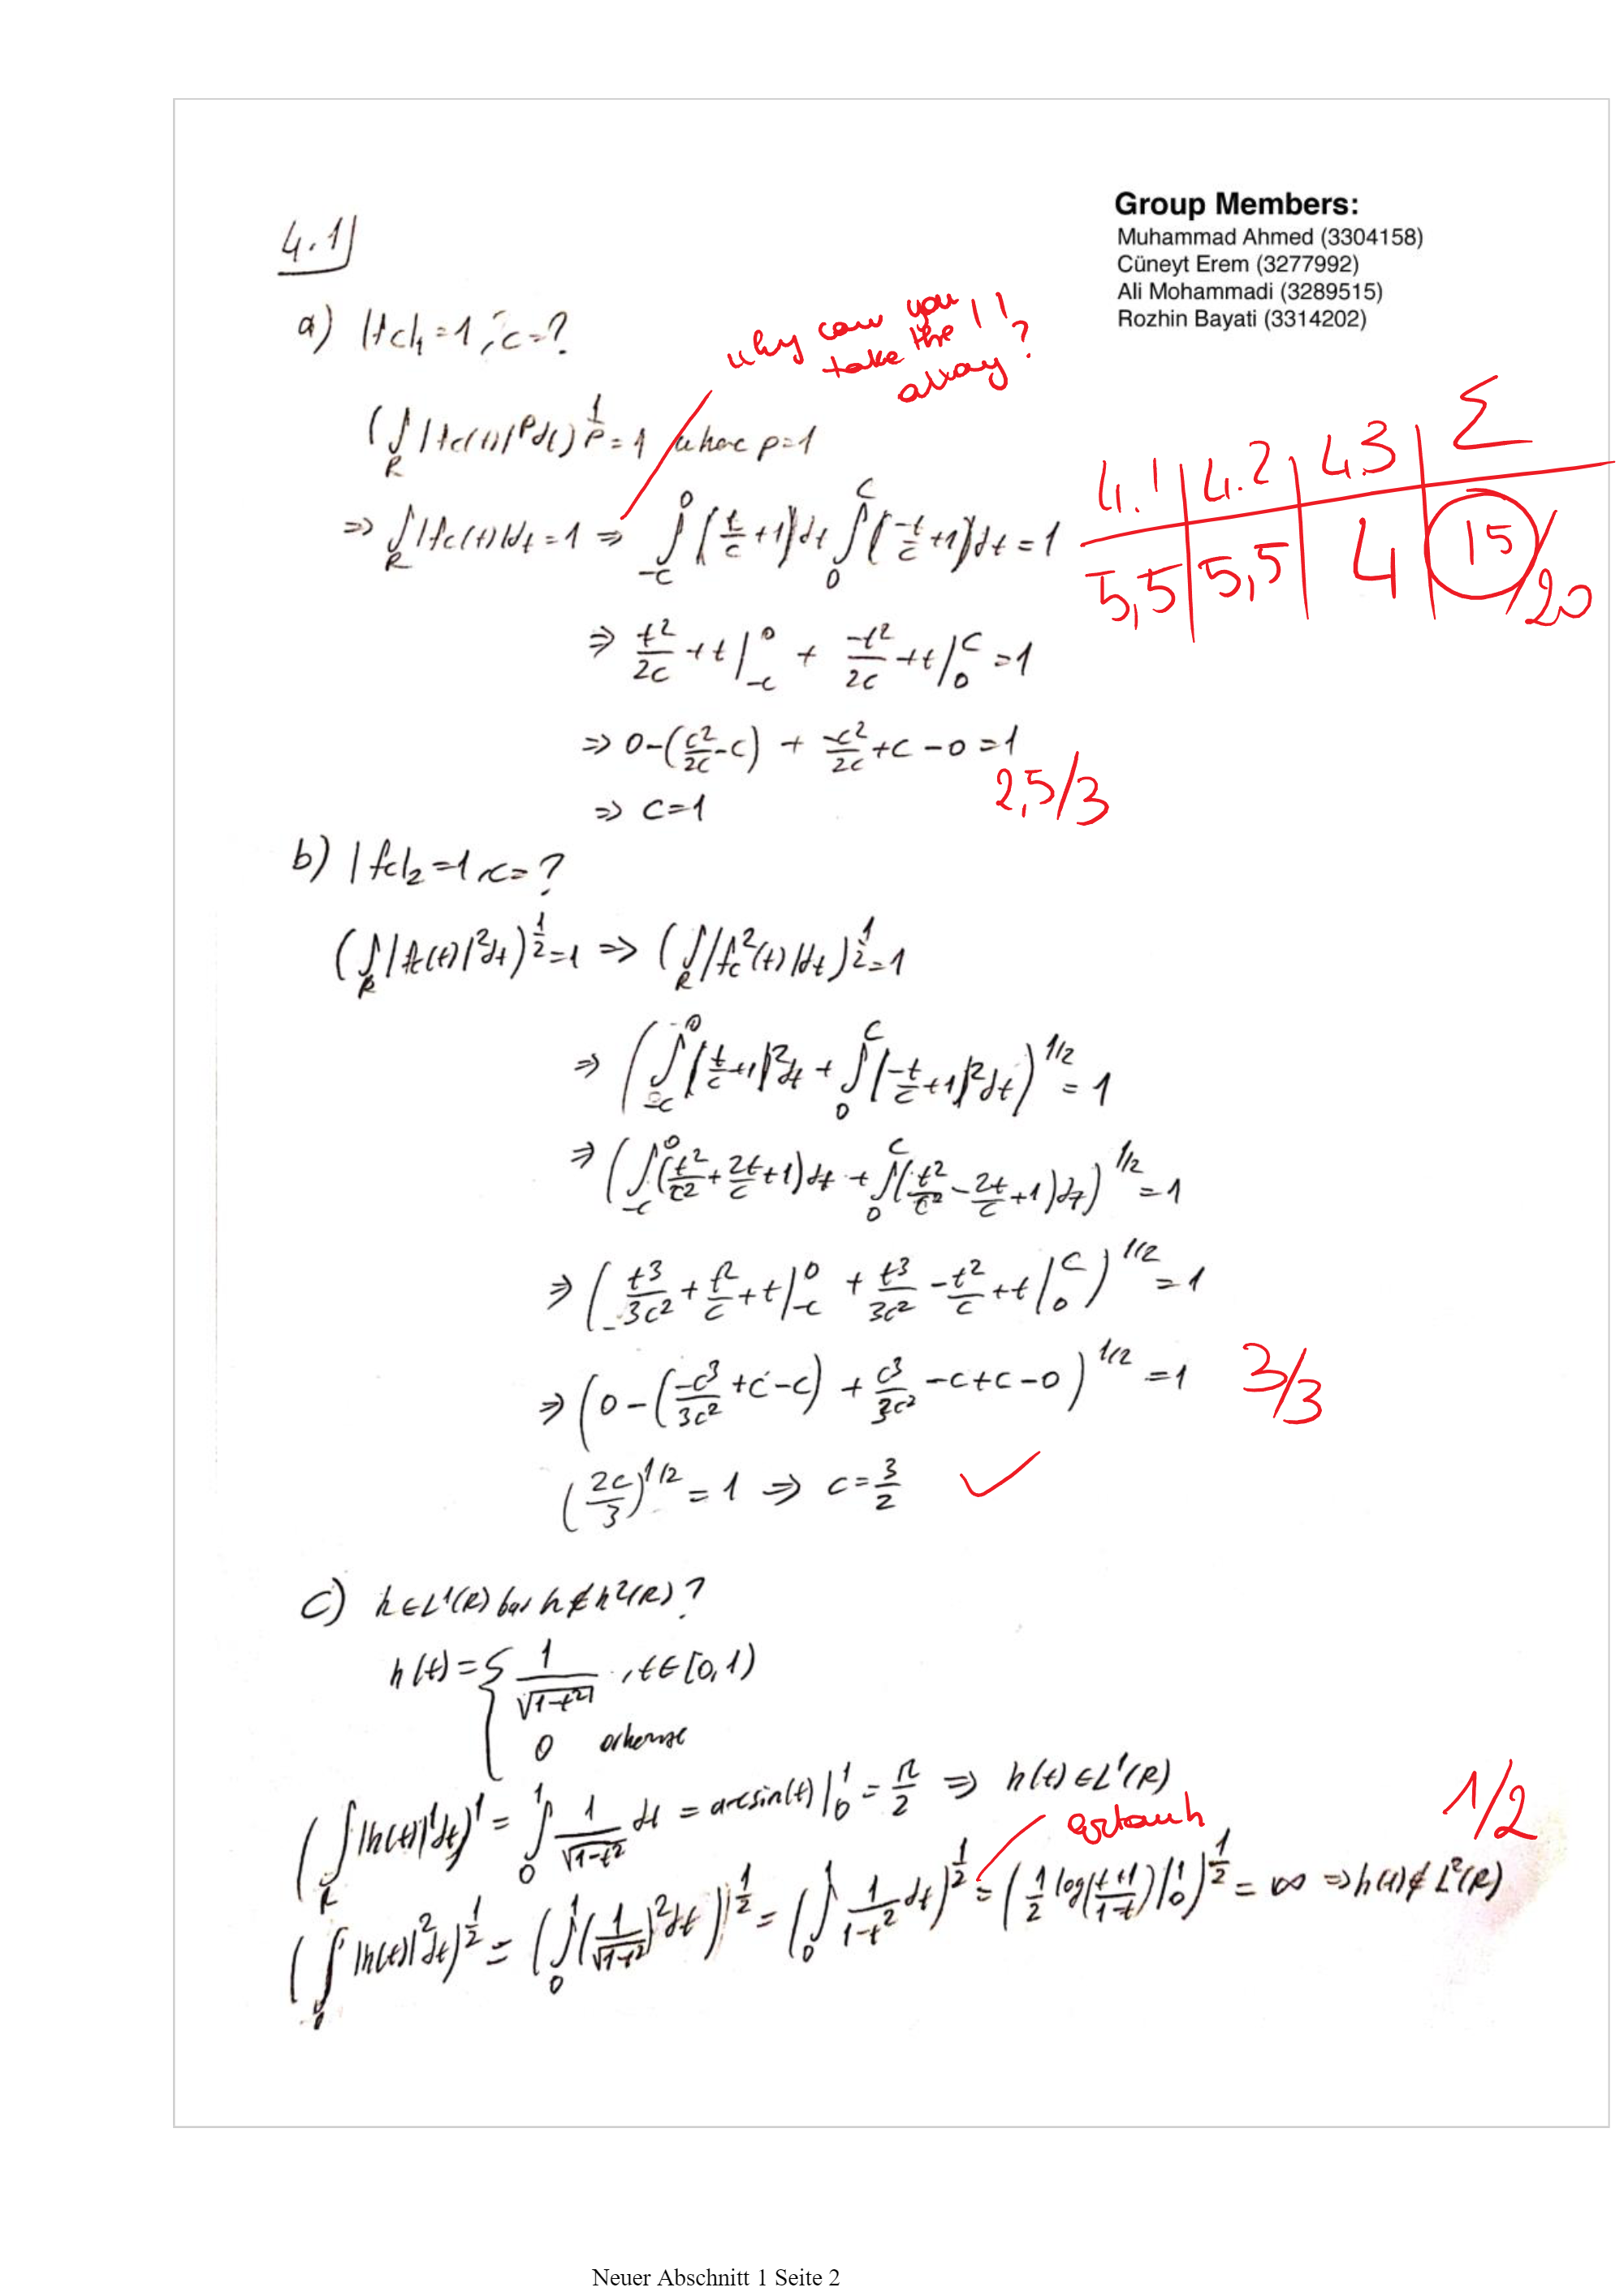 Group Members:
Muhammad Ahmed (3304158)
Cüneyt Erem (3277992)
Ali Mohammadi (3289515)
Rozhin Bayati (3314202)
4.1)
a) |fc|₁ = 1, c = ?
why can you take the | | away?
(∫_R |fc(t)|^p dt)^{1/p} = 1 where p=1
⇒ ∫_R |fc(t)| dt = 1 ⇒ ∫_{-c}^0 (t/c + 1) dt + ∫_0^c (-t/c + 1) dt = 1
4.1 | 4.2 | 4.3 | Σ
5,5 | 5,5 | 4 | 15/20
⇒ t²/2c + t |_{-c}^0 + -t²/2c + t |_0^c = 1
⇒ 0 - (c²/2c - c) + -c²/2c + c - 0 = 1
⇒ c = 1
2,5/3
b) |fc|₂ = 1, c = ?
(∫_R |fc(t)|² dt)^{1/2} = 1 ⇒ (∫_R |fc²(t)| dt)^{1/2} = 1
⇒ (∫_{-c}^0 (t/c + 1)² dt + ∫_0^c (-t/c + 1)² dt)^{1/2} = 1
⇒ (∫_{-c}^0 (t²/c² + 2t/c + 1) dt + ∫_0^c (t²/c² - 2t/c + 1) dt)^{1/2} = 1
⇒ (t³/3c² + t²/c + t |_{-c}^0 + t³/3c² - t²/c + t |_0^c)^{1/2} = 1
⇒ (0 - (-c³/3c² + c - c) + c³/3c² - c + c - 0)^{1/2} = 1
3/3
(2c/3)^{1/2} = 1 ⇒ c = 3/2 ✓
c) h ∈ L¹(R) but h ∉ h²(R) ?
h(t) = { 1/√(1-t²) , t ∈ [0,1)
0 otherwise
(∫_R |h(t)|¹ dt)¹ = ∫_0^1 1/√(1-t²) dt = arcsin(t) |_0^1 = π/2 ⇒ h(t) ∈ L¹(R)
1/2
artanh
(∫ |h(t)|² dt)^{1/2} = (∫_0^1 (1/√(1-t²))² dt)^{1/2} = (∫_0^1 1/(1-t²) dt)^{1/2} = (1/2 log(t+1/1-t) |_0^1)^{1/2} = ∞ ⇒ h(t) ∉ L²(R)
Neuer Abschnitt 1 Seite 2